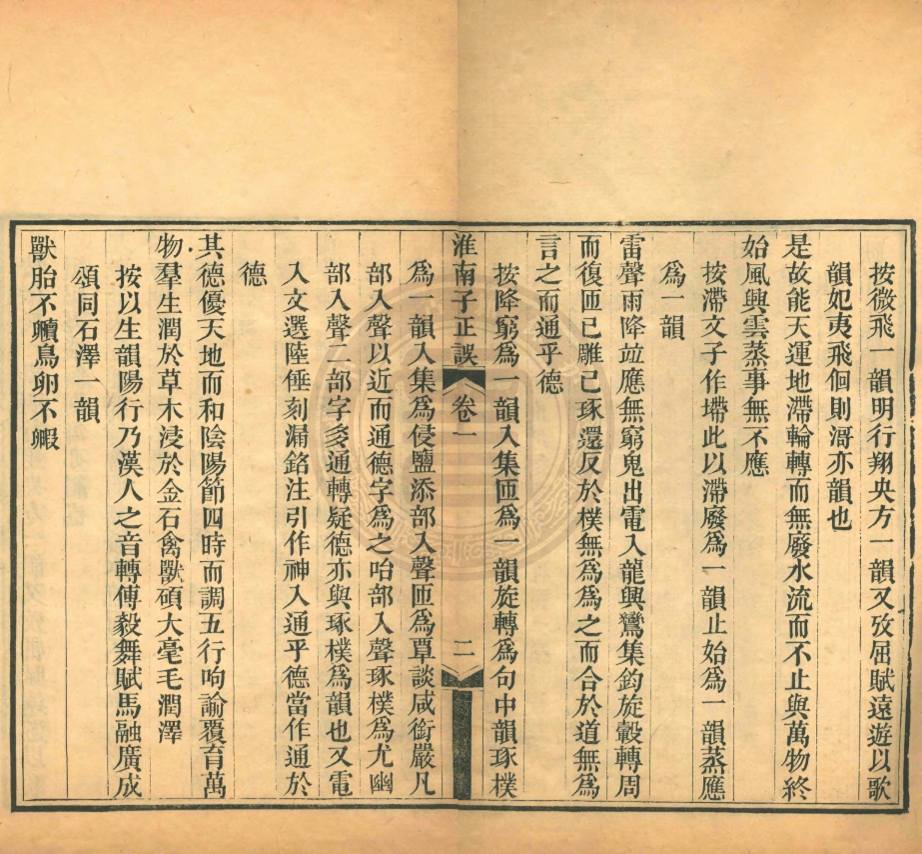 按微飛一韻明行翔央方一韻又攷屈賦遠遊以歌
韻妃夷飛徊則滒亦韻也
是故能天運地滯輪轉而無廢水流而不止與萬物終
始風興雲蒸事無不應
按滯文子作墆此以滯廢爲一韻止始爲一韻蒸應
爲一韻
雷聲雨降竝應無窮鬼出電入龍興鸞集鈞旋轂轉周
而復匝已雕已琢還反於樸無爲爲之而合於道無爲
言之而通乎德
按降窮爲一韻入集匝爲一韻旋轉爲句中韻琢樸
淮南子正誤 卷一 二
爲一韻入集爲侵鹽添部入聲匝爲覃談咸銜嚴凡
部入聲以近而通德字爲之咍部入聲琢樸爲尤幽
部入聲二部字多通轉疑德亦與琢樸爲韻也又電
入文選陸倕刻漏銘注引作神入通乎德當作通於
德
其德優天地而和陰陽節四時而調五行呴諭覆育萬
物羣生潤於草木浸於金石禽獸碩大毫毛潤澤
按以生韻陽行乃漢人之音轉傅毅舞賦馬融廣成
頌同石澤一韻
獸胎不贕鳥卵不毈